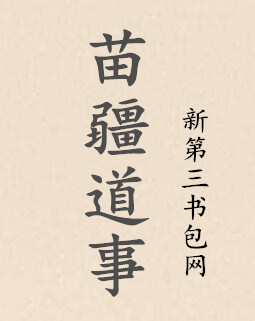 苗疆道事
新第三书包网